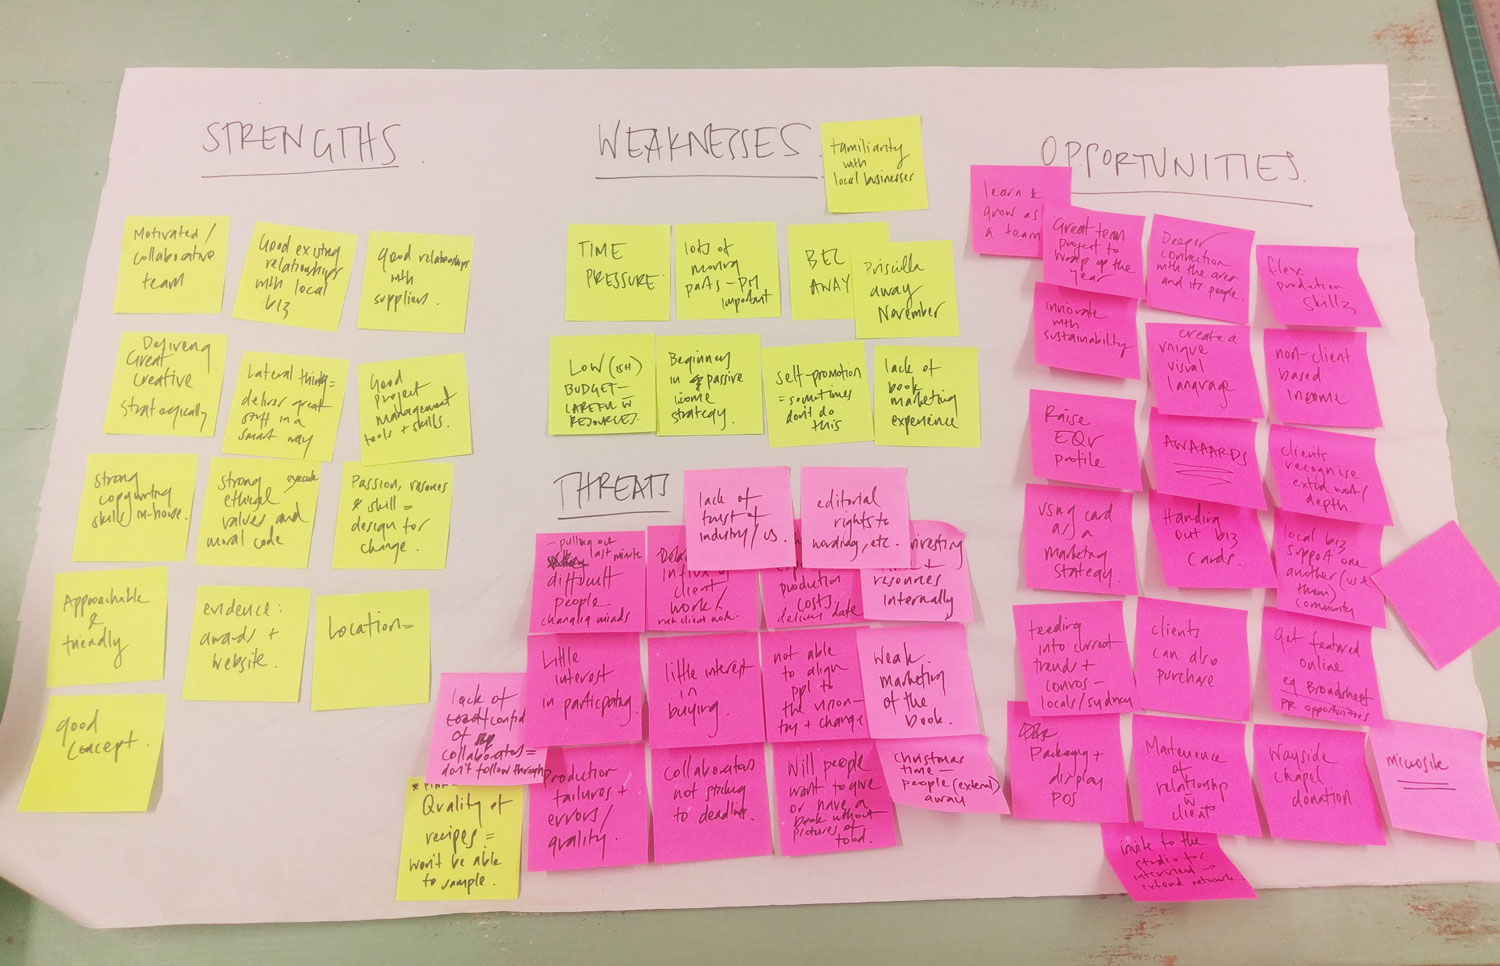 STRENGTHS
Motivated /
collaborative
team
Good existing
relationships
with local
biz
good relationships
with
suppliers.
Delivering
Great
creative
strategically
Lateral =
deliver great
stuff in a
smart way
Good
project
management
tools + skills.
strong
copywriting
skills in-house.
strong
ethical
values and
moral code
Passion,
& skill =
design for
change.
Approachable
&
friendly
evidence:
awards +
website.
Location =
good
concept.
WEAKNESSES
familiarity
with
local businesses
TIME
PRESSURE.
lots of
moving
parts - PM
important
BEC
AWAY
Driscilla
away
November
LOW (ISH)
BUDGET -
CAREFUL W
RESOURCES.
Beginners
in passive
income
strategy.
self-promotion
= sometimes
don't do
this
lack of
book
marketing
experience
THREATS
lack of
trust of
industry / us.
editorial
rights to
wording, etc.
- pulling out
last minute
difficult
people
changing minds
influx of
client
work /
rush client work.
production
costs,
delivery date
resources
internally
Little
interest
in participating.
little interest
in
buying.
not able
to align
ppl to
the vision -
try + change
Weak
marketing
of the
book.
lack of
of
collaborators =
don't follow through
production
failures +
errors /
quality.
collaborators
not sticking
to deadlines.
Will people
want to give
or have a
book without
pictures of
food.
christmas
time -
people (external)
away
Quality of
recipes =
won't be able
to sample.
OPPORTUNITIES.
learn &
grow as
a team
Great team
project to
wrap up the
year
Deeper
connection
with the area
and its people.
flex
production
skillz
innovate
with
sustainability
create a
unique
visual
language
non-client
based
income
Raise
EQV
profile
AWAAARDS
clients
recognise
extra work /
depth.
using card
as a
marketing
strategy.
Handing
out biz
cards.
local biz
support one
another (us &
them)
community
feeding
into current
trends +
convos -
locals / sydney
clients
can also
purchase
get featured
online
eg Broadsheet
PR opportunities
Packaging +
display
POS
Maintenence of
relationship
w
client
Wayside
Chapel
donation.
microsite
invite to the
studio for
interview -
extend network